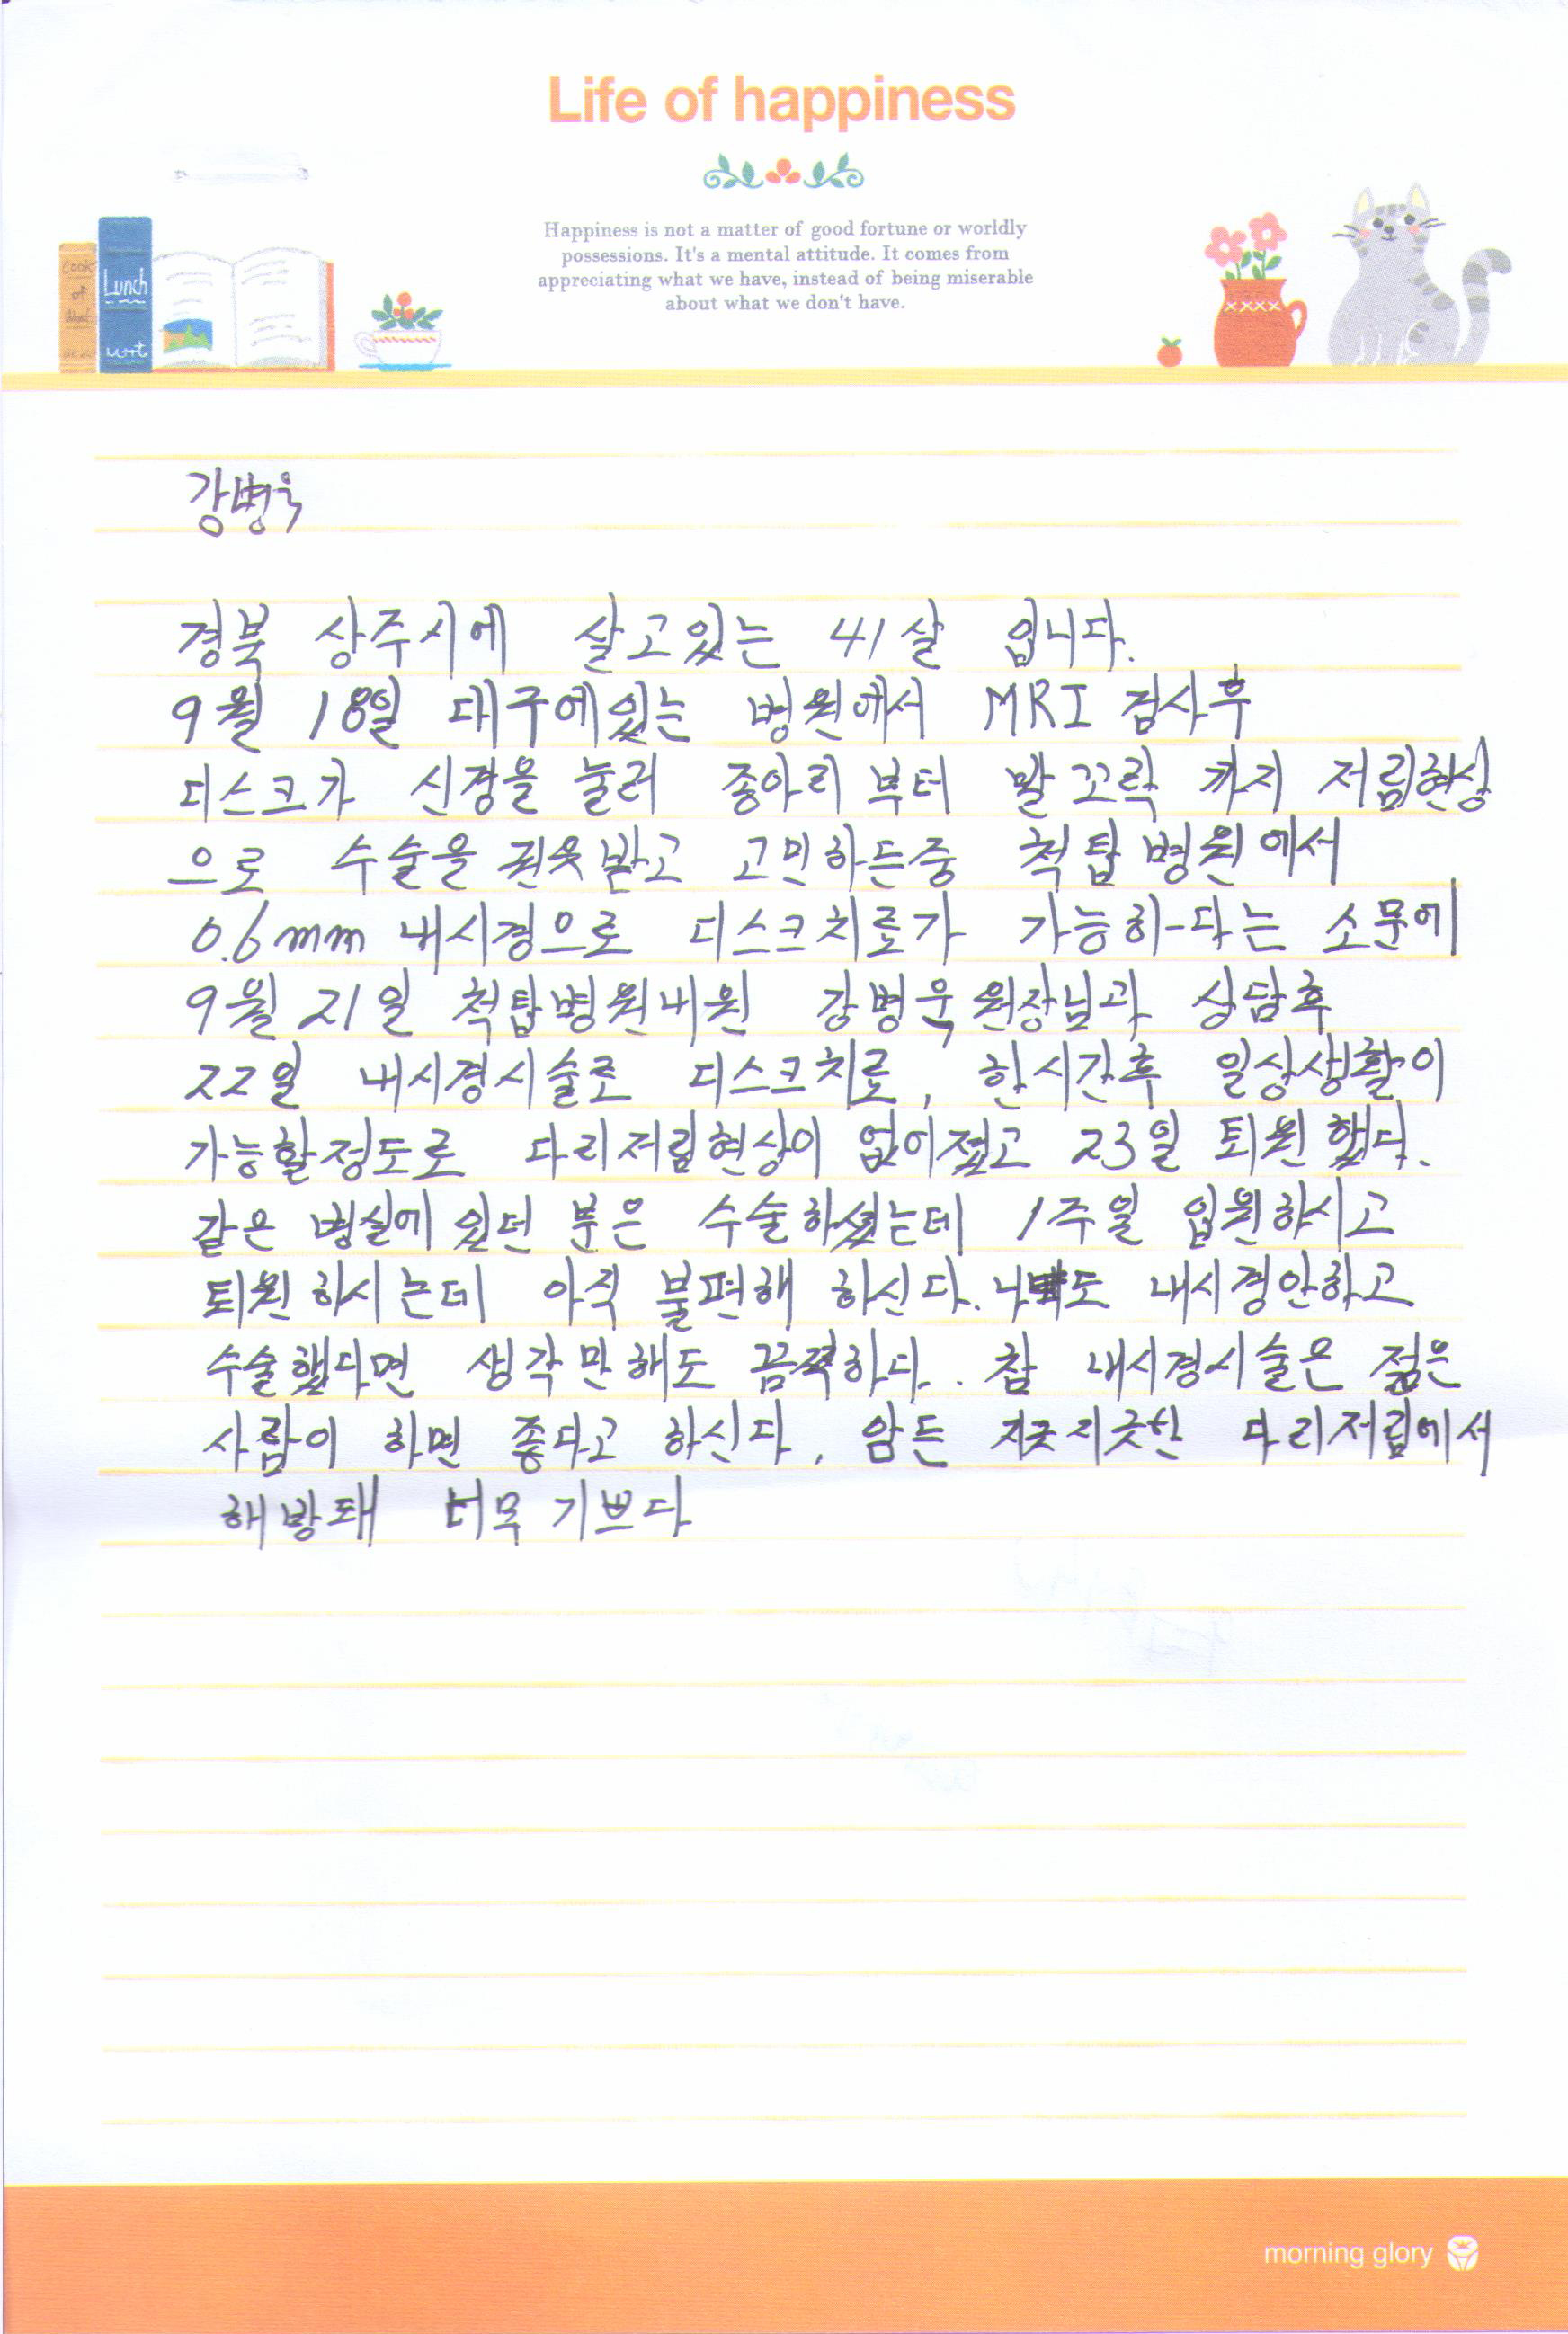 Life of happiness
Happiness is not a matter of good fortune or worldly
possessions. It's a mental attitude. It comes from
appreciating what we have, instead of being miserable
about what we don't have.
Cook
of
Lunch
강병욱
경북 상주시에 살고있는 41살 입니다.
9월 18일 대구에있는 병원에서 MRI 검사후
디스크가 신경을 눌러 종아리 부터 발 꼬락 까지 저림현상
으로 수술을 권유받고 고민하든중 척탑병원에서
0.6mm 내시경으로 디스크치료가 가능하다는 소문에
9월 21일 척탑병원내원 강병욱 원장님과 상담후
22일 내시경시술로 디스크치료, 한시간후 일상생활이
가능할정도로 다리저림현상이 없어졌고 23일 퇴원했다.
같은 병실에 있던 분은 수술하셨는데 1주일 입원하시고
퇴원하시는데 아직 불편해 하신다. 나도 내시경안하고
수술했다면 생각만해도 끔쩍하다. 참 내시경시술은 젊은
사람이 하면 좋다고 하신다. 암튼 지긋지긋한 다리저림에서
해방돼 너무 기쁘다
morning glory